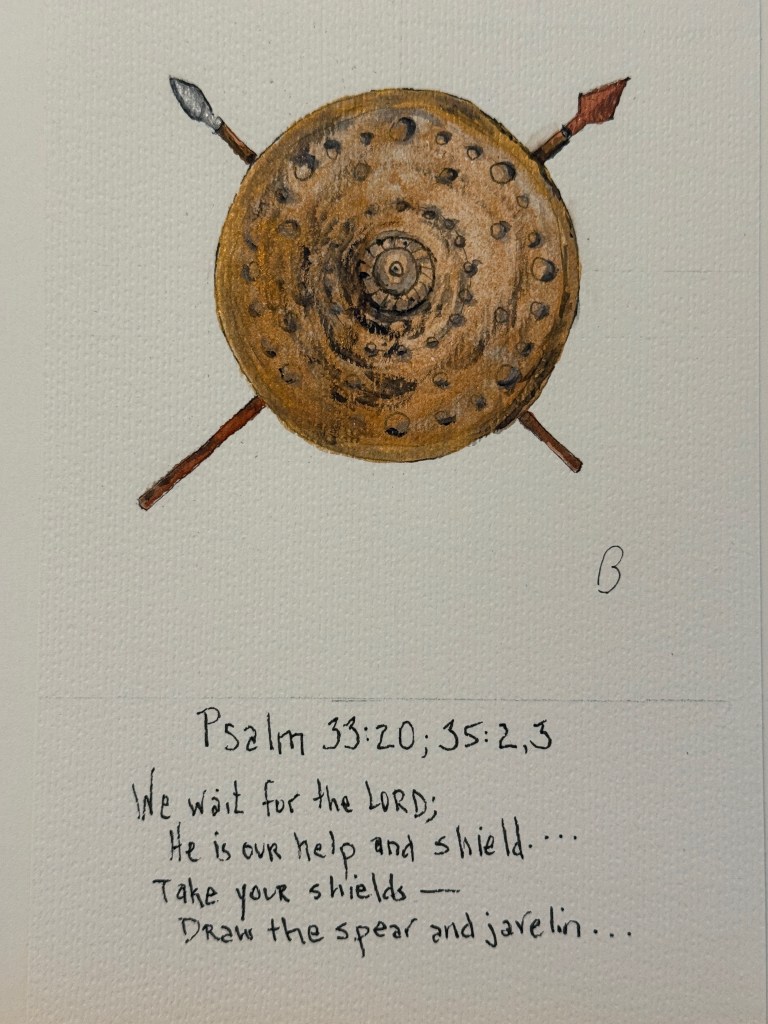 B
Psalm 33:20; 35:2,3
We wait for the LORD;
He is our help and shield....
Take your shields —
Draw the spear and javelin...